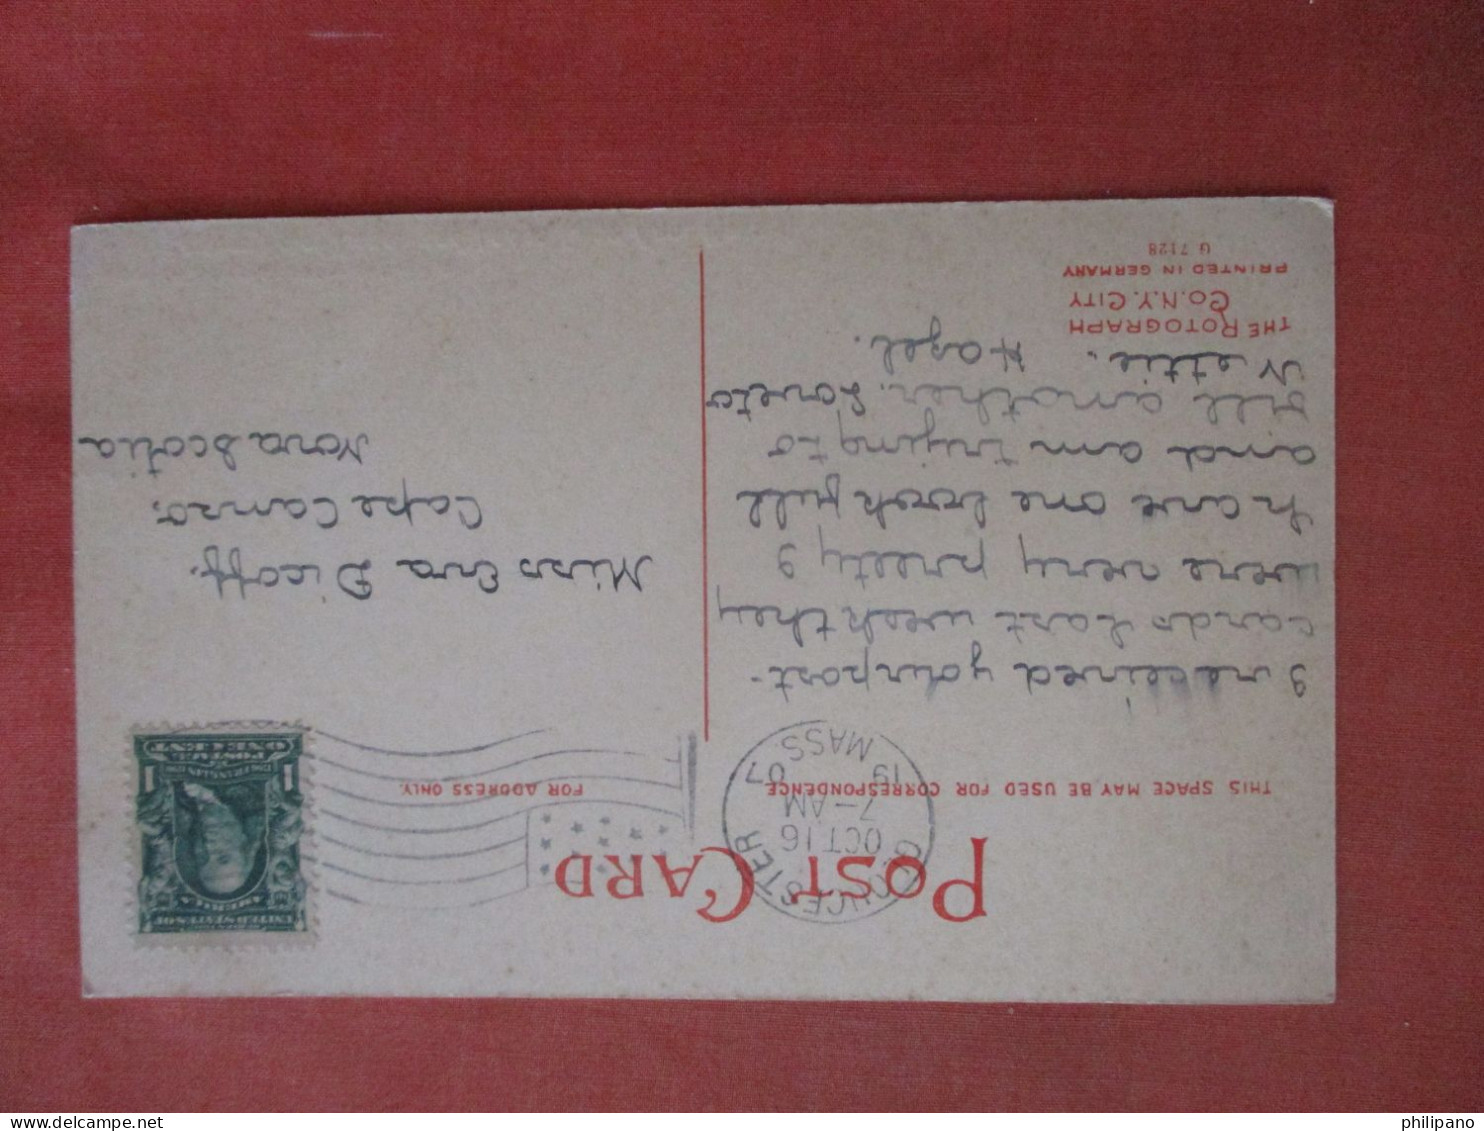 POST CARD
THIS SPACE MAY BE USED FOR CORRESPONDENCE
FOR ADDRESS ONLY.
GLOUCESTER
OCT 16
7-AM
19 07
MASS.
UNITED STATES OF
AMERICA
POSTAGE
ONE CENT
1 1
I received your post-
cards Last week they
were very pretty I
have one book full
and am trying to
fill another. Love to
Nettie. Hazel.
THE ROTOGRAPH
CO. N.Y. CITY
PRINTED IN GERMANY
G 7128
Miss Eva Dicoff.
Cape Canso.
Nova Scotia
philipano